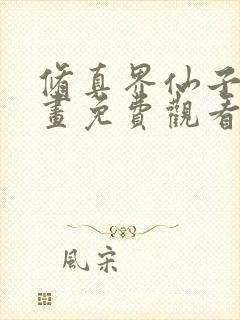 修真界仙子
畫免費觀看
風宋